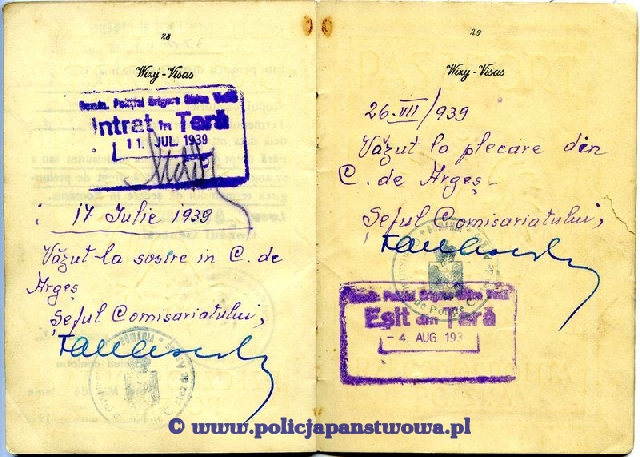 28
Wizy - Visas
Comis. Poliției Grigore Ghica Vodă
Intrat în Țară
11. JUL. 1939
17 Iulie 1939
Văzut la sosire in C. de
Argeș
Șeful Comisariatului,
ROMANIA
29
Wizy - Visas
26.VII/939
Văzut la plecare din
C. de Argeș
Șeful Comisariatului,
ROMANIA
Comis. Poliției Grigore Ghica Vodă
Eșit din Țară
- 4. AUG 193
© www.policjapanstwowa.pl